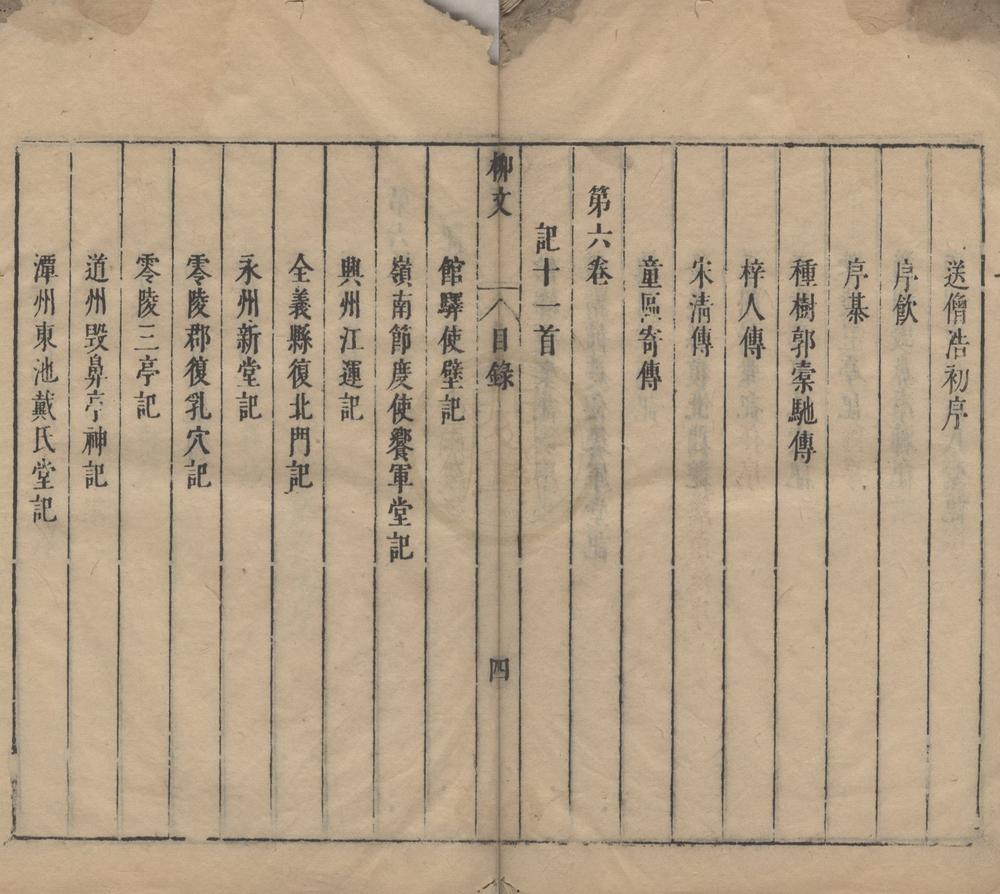 送僧浩初序
序飲
序棊
種樹郭橐馳傳
梓人傳
宋清傳
童區寄傳
第六卷
記十一首
柳文 目錄 四
館驛使壁記
嶺南節度使饗軍堂記
興州江運記
全義縣復北門記
永州新堂記
零陵郡復乳穴記
零陵三亭記
道州毀鼻亭神記
潭州東池戴氏堂記